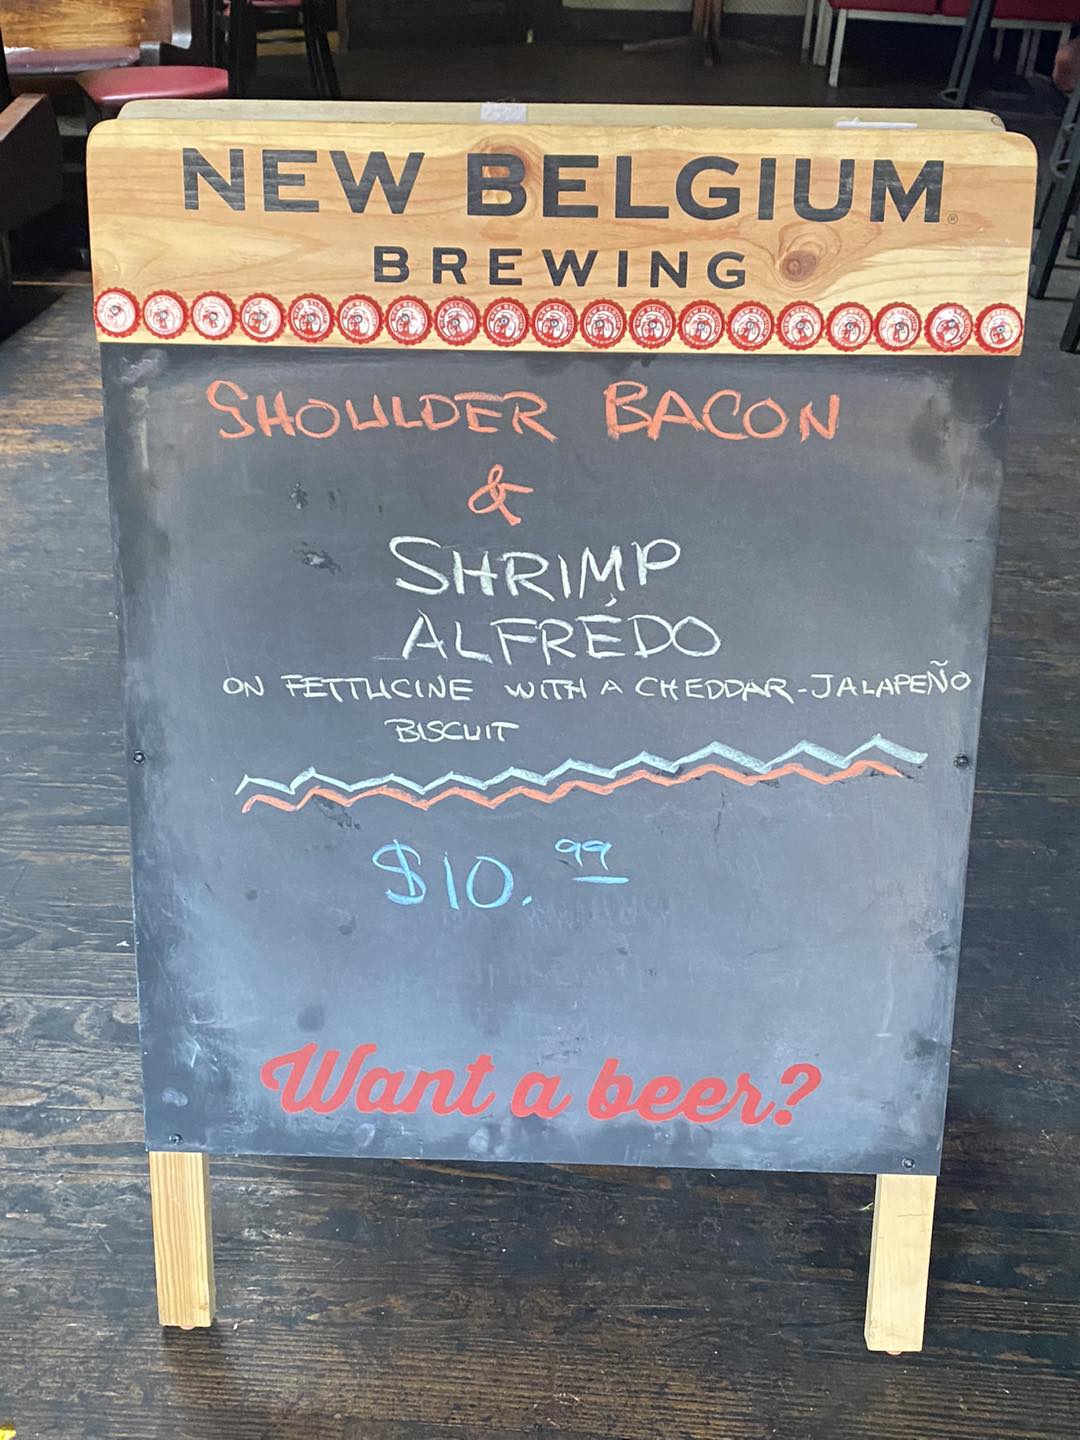 NEW BELGIUM®
BREWING
SHOULDER BACON
&
SHRIMP
ALFRÉDO
ON FETTUCINE WITH A CHEDDAR-JALAPEÑO
BISCUIT
$10.99
Want a beer?